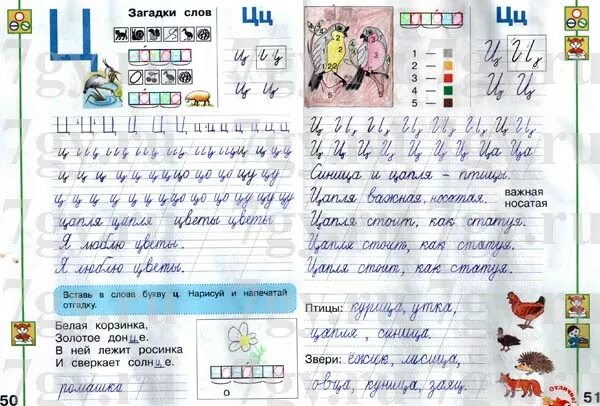 Загадки слов
Цц
Ц
ц ц ц
Ц Ц Ц Ц Ц Ц
ц ц ц ц
цо цо цо цу цу
цо цо цо цу цу
цапля цапля цветы цветы
Я люблю цветы.
Я люблю цветы.
Вставь в слова букву ц. Нарисуй и напечатай отгадку.
Белая корзинка,
Золотое донце.
В ней лежит росинка
И сверкает солнце.
ромашка
о
50
Цц
2
3
4
5
1 —
2 —
3 —
4 —
5 —
Ц Ц
Ц Ц
Ц Ц Ц Ц Ц Ц
Ц Ц Ц Ц Ц Ц Ца Ца
Синица и цапля – птицы.
Цапля важная, носатая.
важная
носатая
Цапля стоит, как статуя.
Цапля стоит, как статуя.
Цапля стоит, как статуя.
Птицы: курица, утка,
цапля, синица.
Звери: ёжик, лисица,
овца, куница, заяц.
отлично!
51